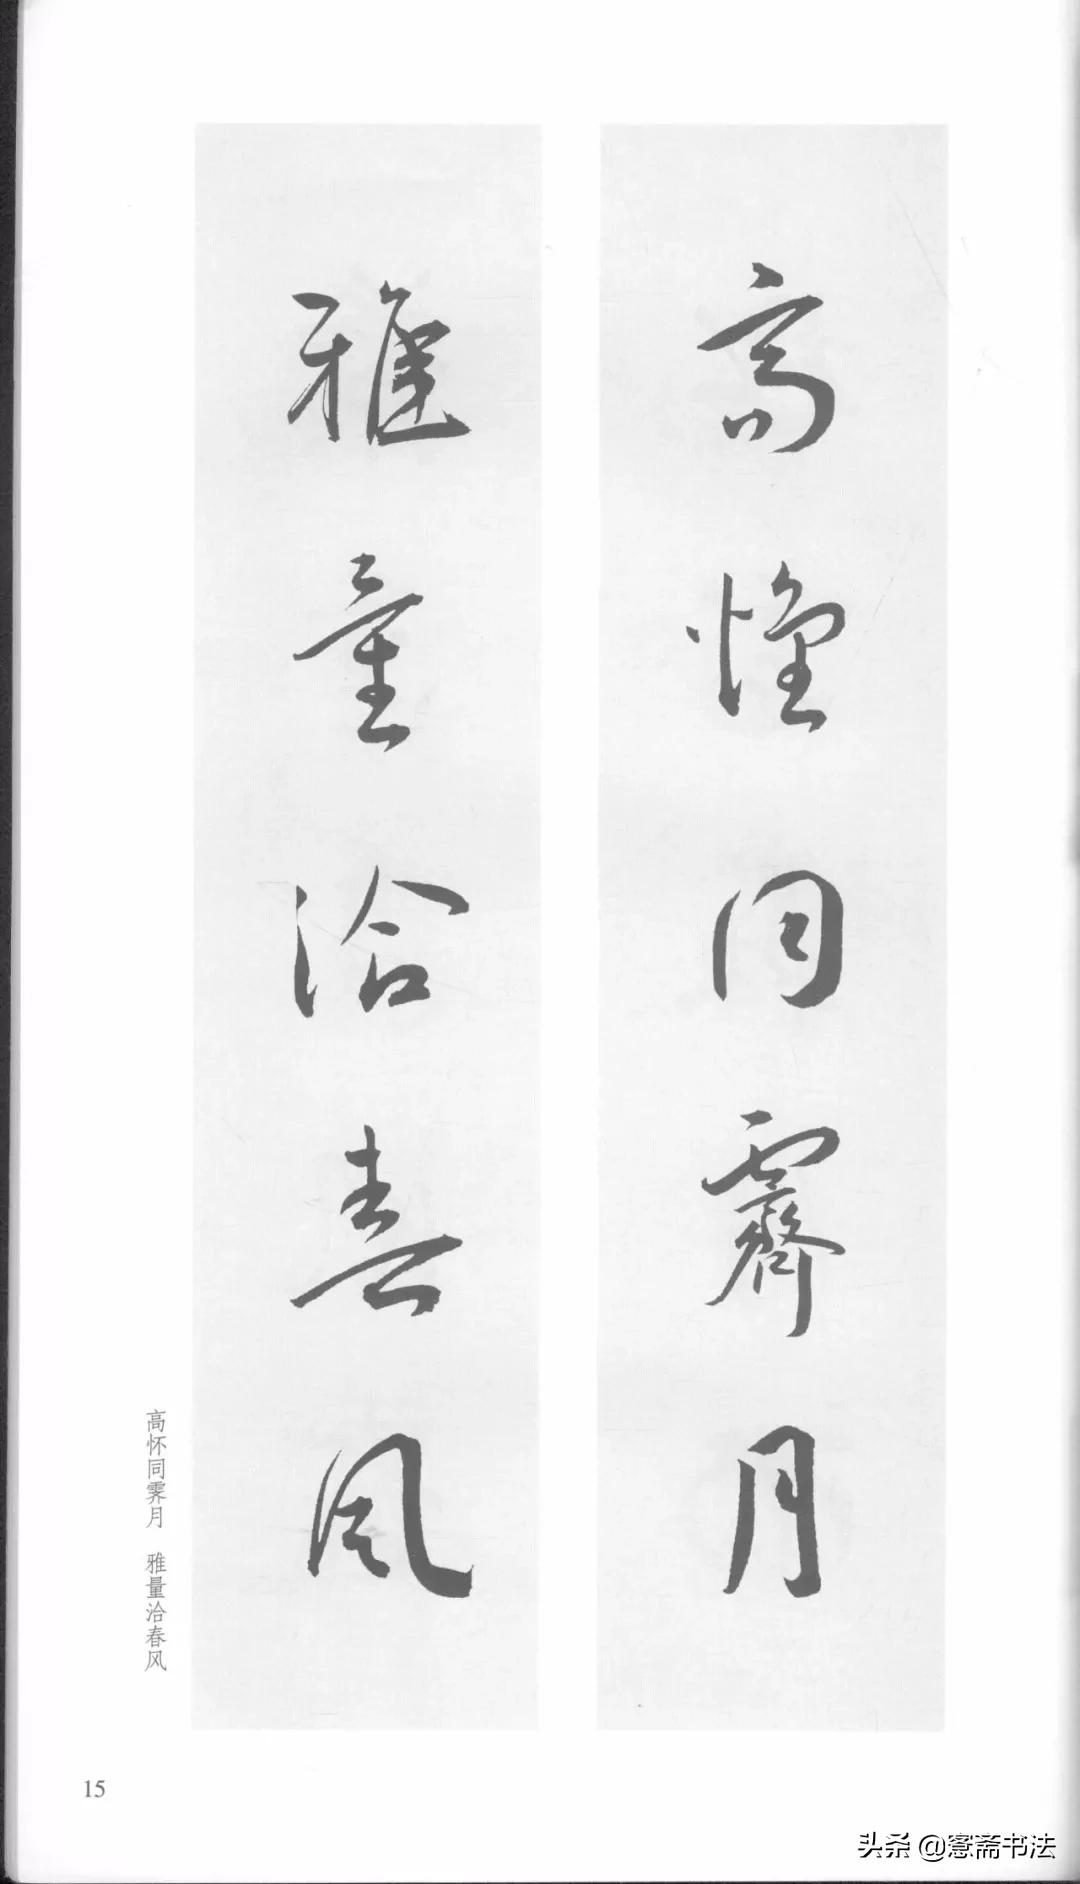 高怀同霁月
雅量洽春风
高怀同霁月 雅量洽春风
15
头条 @愙斋书法